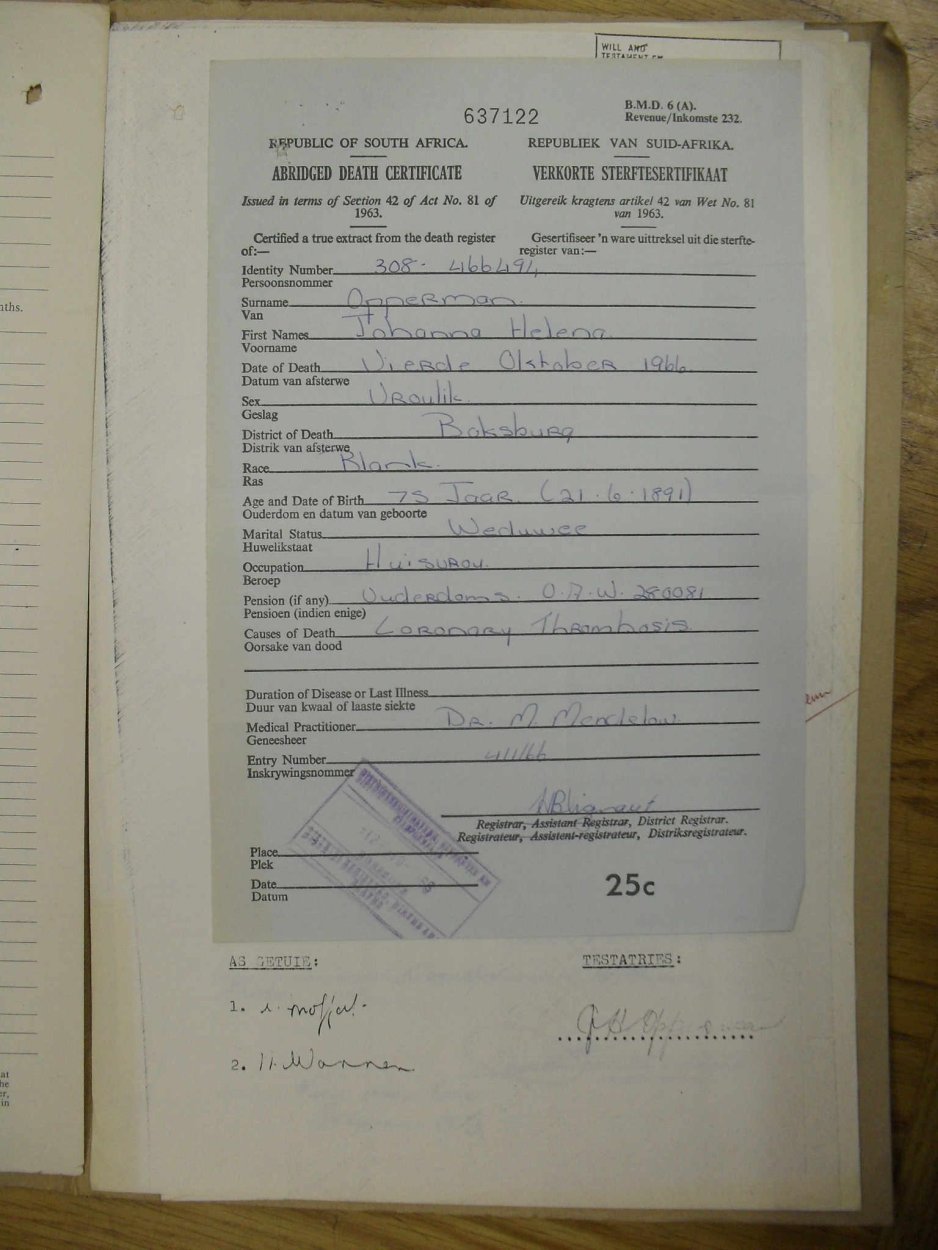 WILL AND
TESTAMENT EN
637122
B.M.D. 6 (A).
Revenue/Inkomste 232.
REPUBLIC OF SOUTH AFRICA.
REPUBLIEK VAN SUID-AFRIKA.
ABRIDGED DEATH CERTIFICATE
VERKORTE STERFTESERTIFIKAAT
Issued in terms of Section 42 of Act No. 81 of
1963.
Uitgereik kragtens artikel 42 van Wet No. 81
van 1963.
Certified a true extract from the death register
of:—
Gesertifiseer 'n ware uittreksel uit die sterfte-
register van:—
Identity Number 308- 466494
Persoonsnommer
Surname Opperman.
Van
First Names Johanna Helena.
Voorname
Date of Death Vierde Oktober 1966.
Datum van afsterwe
Sex Vroulik.
Geslag
District of Death Boksburg
Distrik van afsterwe
Race Blank.
Ras
Age and Date of Birth 75 Jaar (21.6.1891)
Ouderdom en datum van geboorte
Marital Status Weduwee
Huwelikstaat
Occupation Huisvrou.
Beroep
Pension (if any) Ouderdoms. 280081
Pensioen (indien enige)
Causes of Death Coronary Thrombosis.
Oorsake van dood
Duration of Disease or Last Illness
Duur van kwaal of laaste siekte
Medical Practitioner Dr. M. Mendelow.
Geneesheer
Entry Number
Inskrywingsnommer
Registrar, Assistant Registrar, District Registrar.
Registrateur, Assistent-registrateur, Distriksregistrateur.
Place
Plek
Date
Datum
25c
AS GETUIE:
TESTATRIES:
1.
J H Opperman
2. H. Wannen
ths.
at
he
er,
in